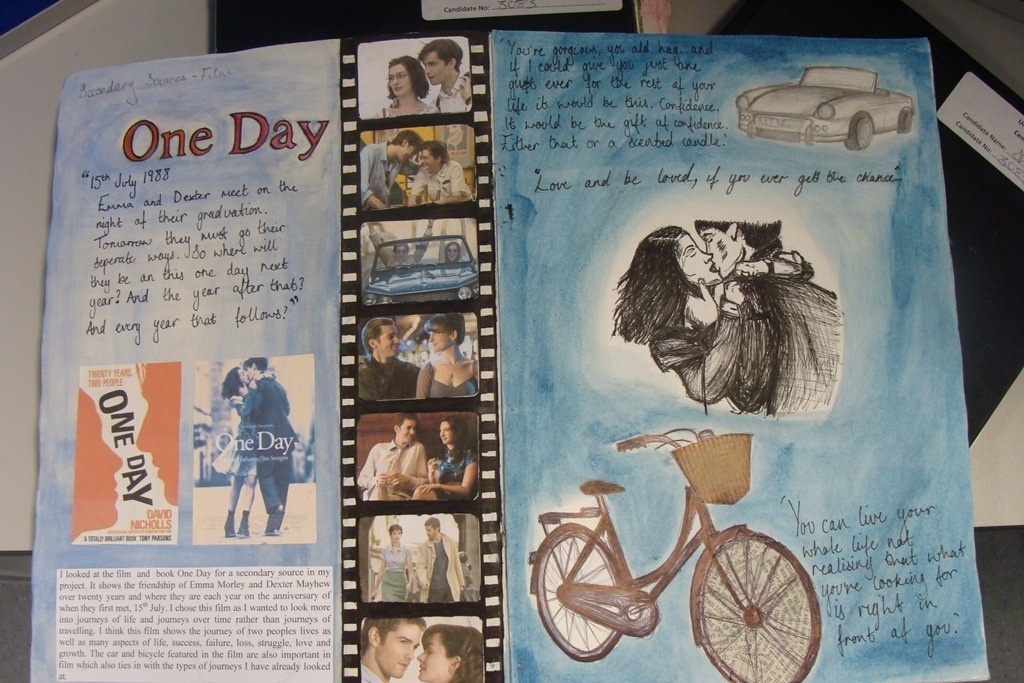 Candidate No: 3083
Secondary Sources - Film
One Day
"15th July 1988
Emma and Dexter meet on the
night of their graduation.
Tomorrow they must go their
seperate ways. So where will
they be on this one day next
year? And the year after that?
And every year that follows?"
TWENTY YEARS,
TWO PEOPLE
ONE DAY
DAVID
NICHOLLS
'A TOTALLY BRILLIANT BOOK' TONY PARSONS
One Day
I looked at the film and book One Day for a secondary source in my
project. It shows the friendship of Emma Morley and Dexter Mayhew
over twenty years and where they are each year on the anniversary of
when they first met, 15th July. I chose this film as I wanted to look more
into journeys of life and journeys over time rather than journeys of
travelling. I think this film shows the journey of two peoples lives as
well as many aspects of life, success, failure, loss, struggle, love and
growth. The car and bicycle featured in the film are also important in
film which also ties in with the types of journeys I have already looked
at.
'You're gorgeous, you old hag, and
if I could give you just one
gift ever for the rest of your
life it would be this. Confidence.
It would be the gift of confidence.
Either that or a scented candle.'
"Love and be loved, if you ever get the chance"
'You can live your
whole life not
realising that what
you're looking for
is right in
front of you.'
Candidate Name:
Candidate No: